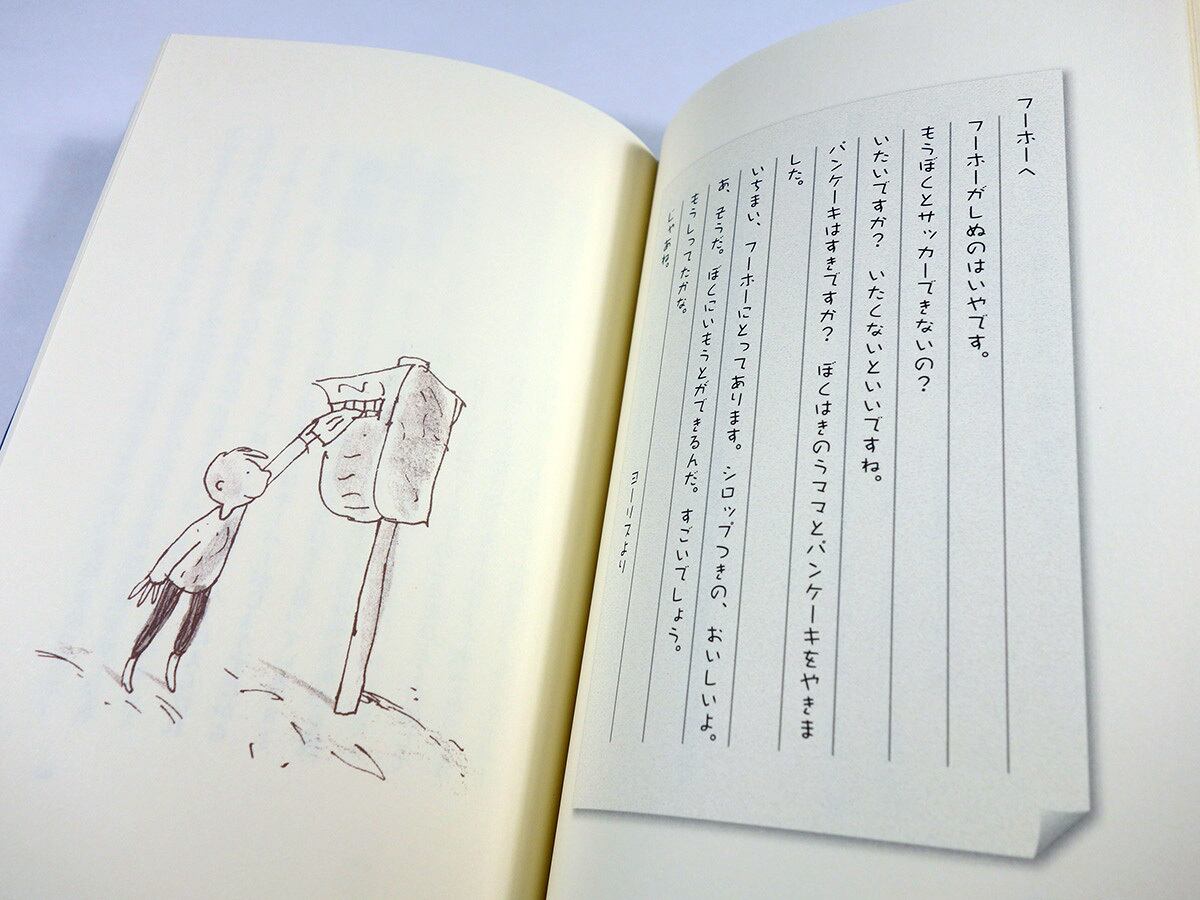 フーホーへ
フーホーがしぬのはいやです。
もうぼくとサッカーできないの？
いたいですか？　いたくないといいですね。
パンケーキはすきですか？　ぼくはきのうママとパンケーキをやきま
した。
いちまい、フーホーにとってあります。シロップつきの、おいしいよ。
あ、そうだ。ぼくにいもうとができるんだ。すごいでしょう。
もうしってたかな。
じゃあね。
ヨーリスより